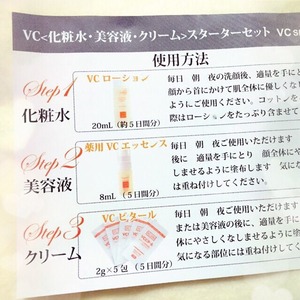 VC<化粧水・美容液・クリーム>スターターセット VC
使用方法
Step1
化粧水
VC ローション
20mL(約5日間分)
毎日 朝 夜の洗顔後、適量を手にと
顔から首にかけて肌全体に優しくな
ようにご使用ください。コットンを
際はローションをたっぷり含ませて
Step2
美容液
薬用 VC エッセンス
8mL (5日間分)
毎日 朝 夜ご使用いただけます
後に 適量を手にとり 顔全体にや
しませるように塗布します 気に
は重ね付けしてください。
Step3
クリーム
VC ビタール
2g×5包 (5日間分)
毎日 朝 夜ご使用いただけます
または美容液の後に、適量を手
体にやさしくなじませるように塗
気になる部位には重ね付けして